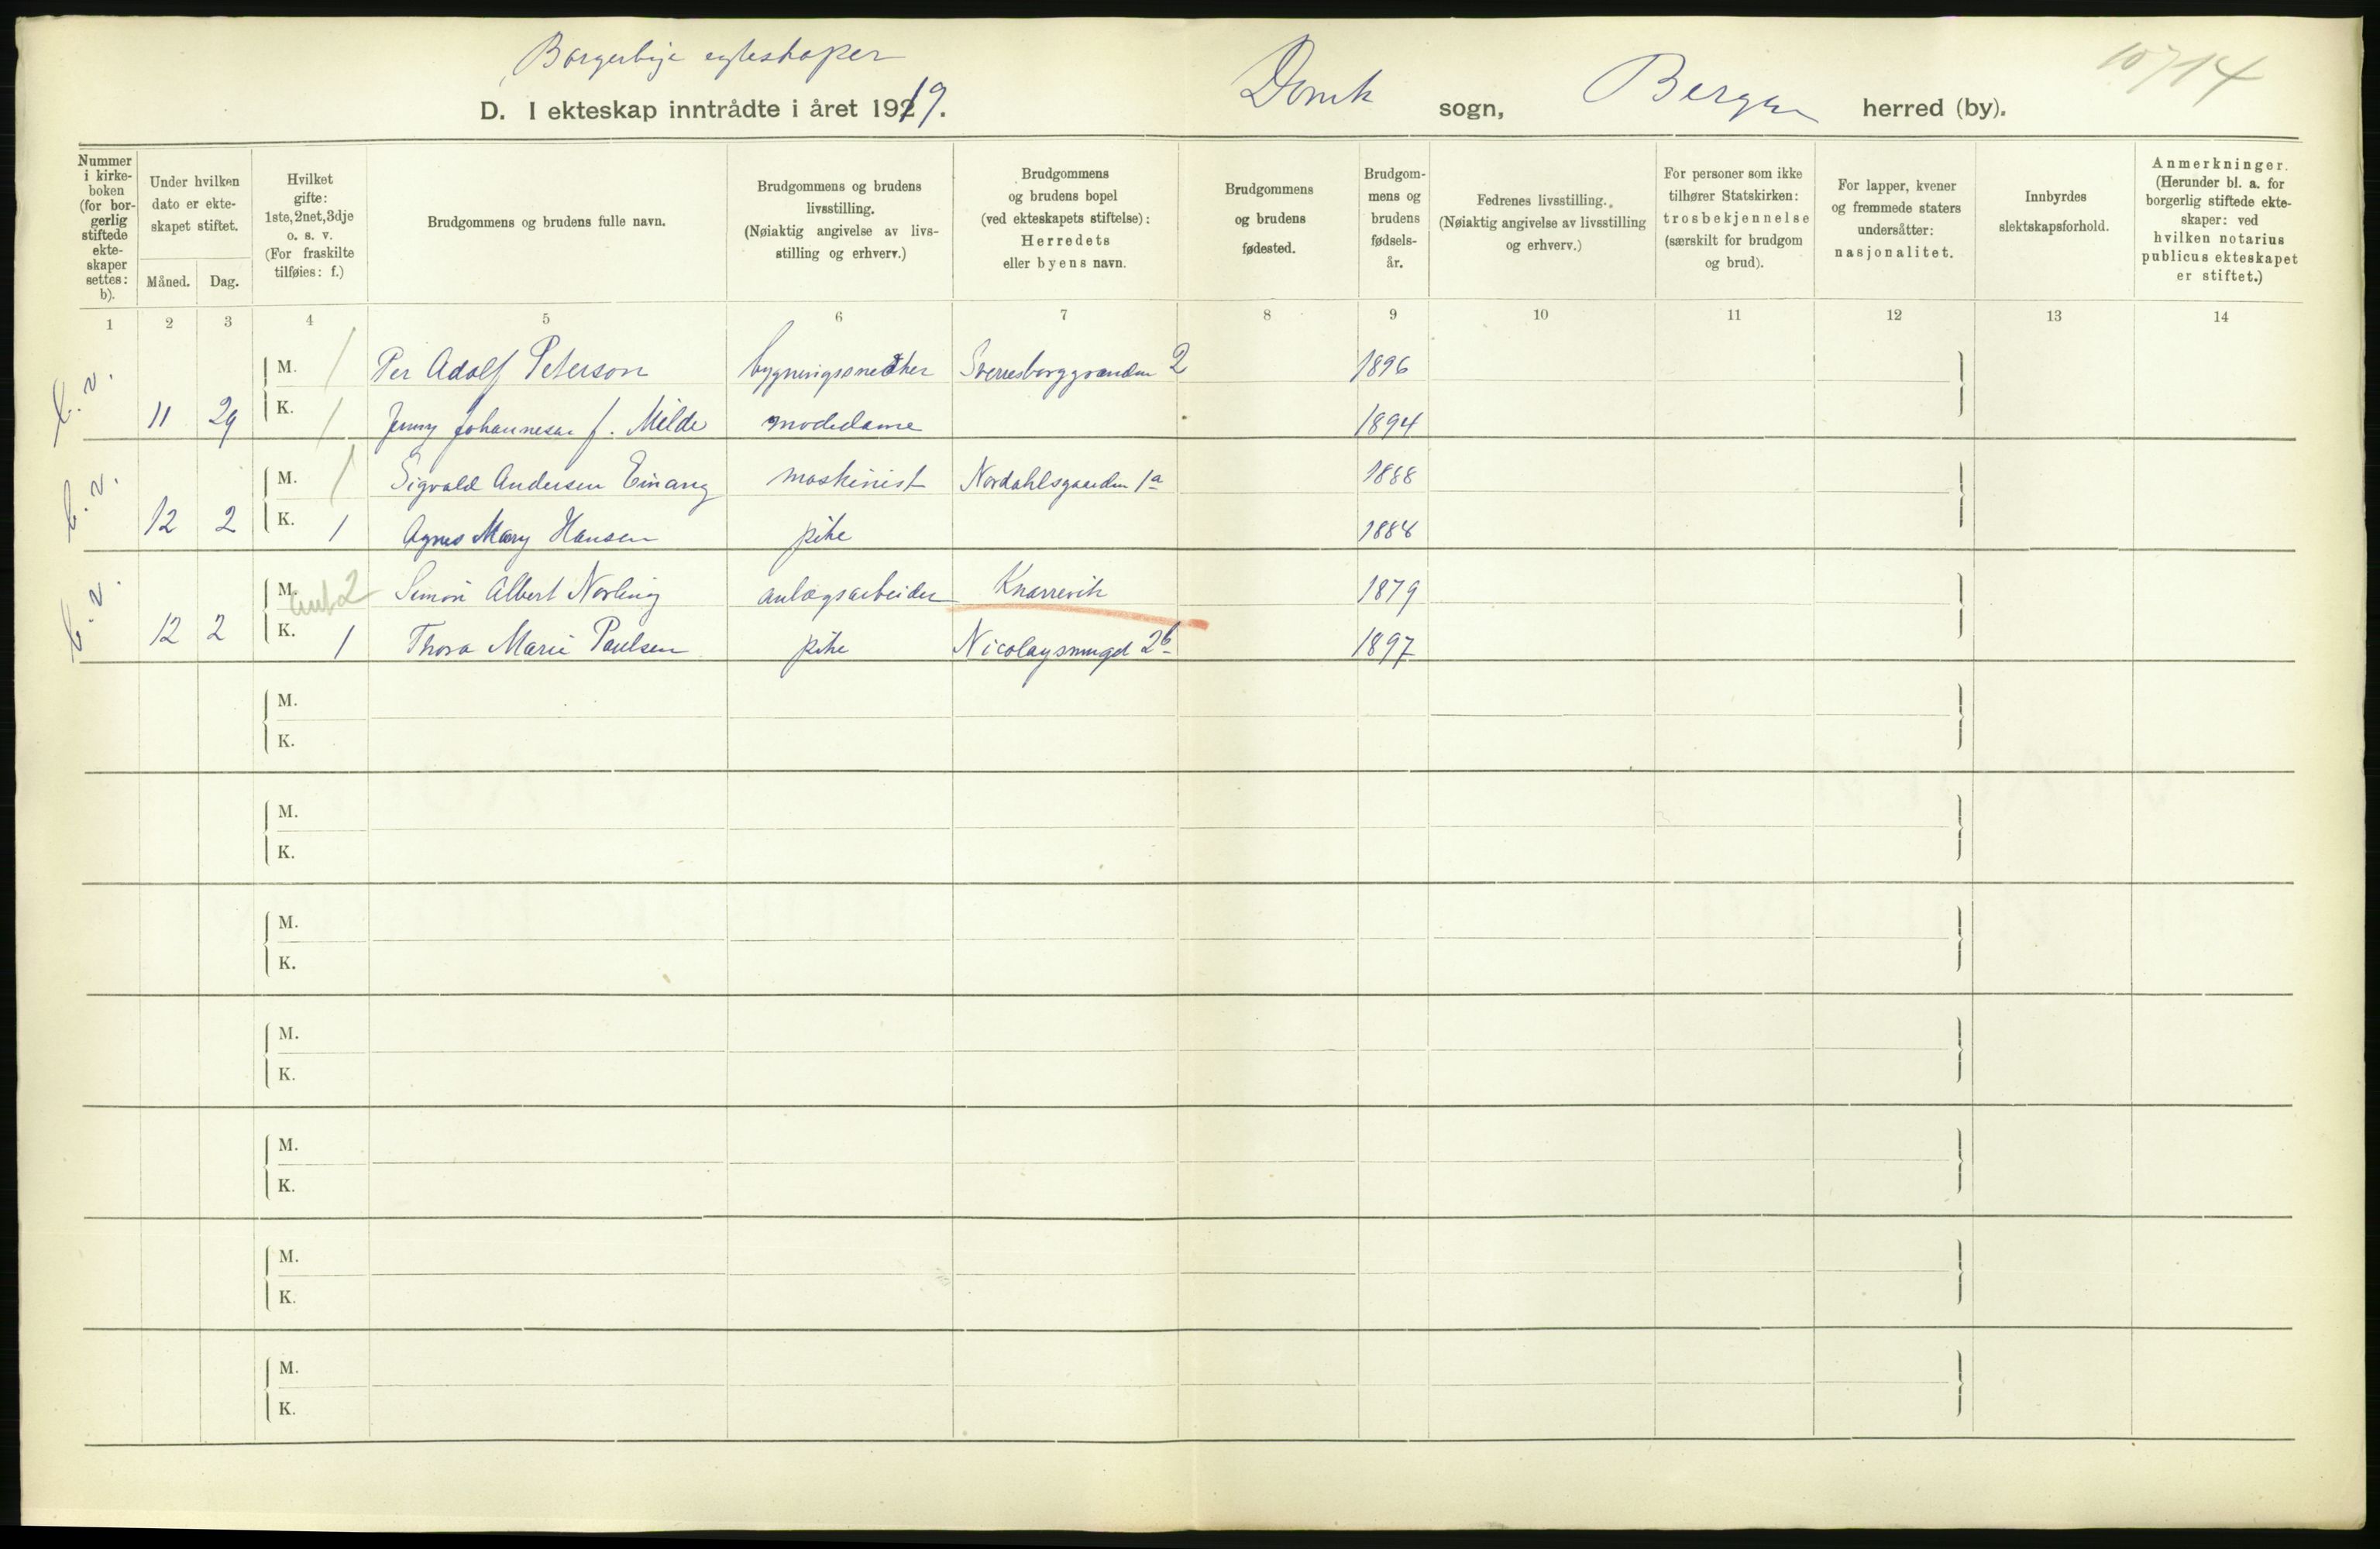 Borgerlige egteskaper
10714
D. I ekteskap inntrådte i året 1919. Domk sogn, Bergen herred (by).
Nummer i kirkeboken (for borgerlig stiftede ekteskaper settes: b).
Under hvilken dato er ekteskapet stiftet.
Måned. Dag.
Hvilket gifte: 1ste, 2net, 3dje o. s. v. (For fraskilte tilføies: f.)
Brudgommens og brudens fulle navn.
Brudgommens og brudens livsstilling. (Nøiaktig angivelse av livsstilling og erhverv.)
Brudgommens og brudens bopel (ved ekteskapets stiftelse): Herredets eller byens navn.
Brudgommens og brudens fødested.
Brudgommens og brudens fødselsår.
Fedrenes livsstilling. (Nøiaktig angivelse av livsstilling og erhverv.)
For personer som ikke tilhører Statskirken: trosbekjennelse (særskilt for brudgom og brud).
For lapper, kvener og fremmede staters undersåtter: nasjonalitet.
Innbyrdes slektskapsforhold.
Anmerkninger. (Herunder bl. a. for borgerlig stiftede ekteskaper: ved hvilken notarius publicus ekteskapet er stiftet.)
1 2 3 4 5 6 7 8 9 10 11 12 13 14
M. 1 Per Adolf Peterson bygningssnedker Sverresborggranden 2 1896
b. v. 11 29 K. 1 Jenny Johannesen f. Milde modedame 1894
M. 1 Sigvald Andersen Einang maskinist Nordahlsgaarden 1a 1888
b. v. 12 2 K. 1 Agnes Mary Hansen pike 1884
M. 2 Simon Albert Norling anlægsarbeider Knarrevik 1879
b. v. 12 2 K. 1 Thora Marie Paulsen pike Nicolaysmuget 2b 1897
M.
K.
M.
K.
M.
K.
M.
K.
M.
K.
M.
K.
M.
K.